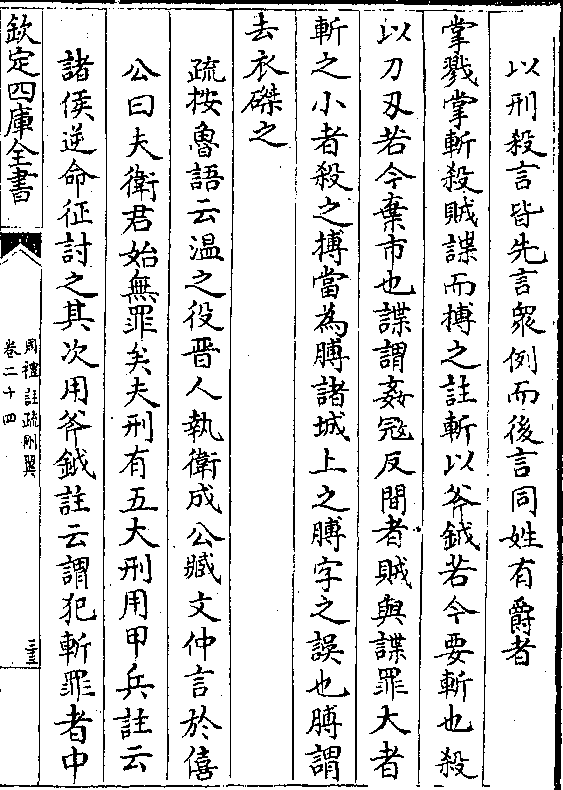 以刑殺言皆先言衆例而後言同姓有爵者
掌戮掌斬殺賊諜而搏之註斬以斧鉞若今要斬也殺
以刀刃若今棄市也諜謂姦冦反間者賊與諜罪大者
斬之小者殺之搏當為膊諸城上之膊字之誤也膊謂
去衣磔之
疏按魯語云温之役晉人執衛成公臧文仲言於僖
公曰夫衛君始無罪矣夫刑有五大刑用甲兵註云
諸侯逆命征討之其次用斧鉞註云謂犯斬罪者中
欽定四庫全書
周禮註疏刪翼
卷二十四
三三